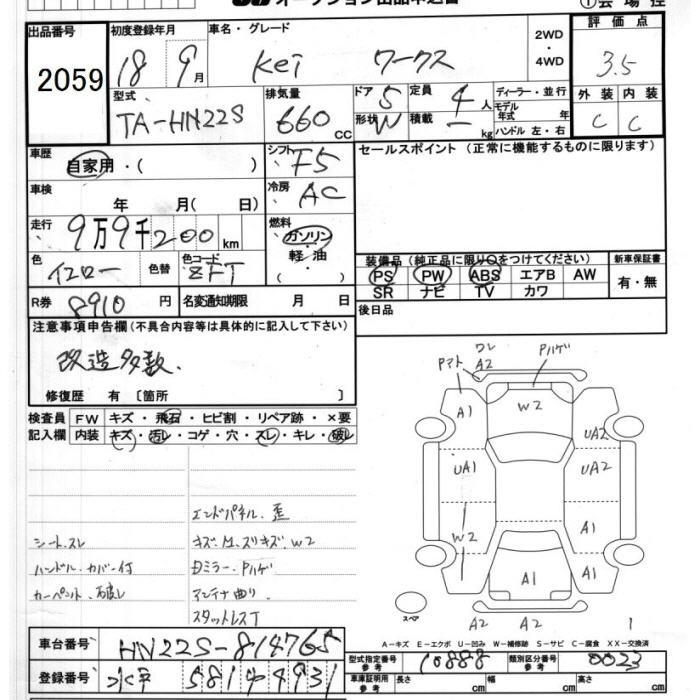 オークション出品申込書
①会場控
出品番号 初度登録年月 車名・グレード 2WD・4WD 評価点
2059 18 9月 Kei ワークス 3.5
型式 排気量 ドア 定員 ディーラー・並行 外装 内装
TA-HN22S 660cc 5 4人 モデル年式 年 C C
形状 W 積載 ー kg ハンドル 左・右
車歴 自家用・( シフト F5 セールスポイント (正常に機能するものに限ります)
車検 年 月( 日) 冷房 AC
走行 9万9千200km 燃料 ガソリン・軽油・( )
色 イエロー 色替 色コード ZFT
装備品 (純正品に限り○をつけてください) 新車保証書
PS PW ABS エアB AW 有・無
SR ナビ TV カワ
R券 8910円 名変通知期限 月 日 後日品
注意事項申告欄(不具合内容等は具体的に記入して下さい)
改造多数.
修復歴 有 [箇所 ]
検査員記入欄 FW キズ・飛石・ヒビ割・リペア跡・×要
内装 キズ・汚レ・コゲ・穴・スレ・キレ・破レ
エンドパネル.歪
シート.スレ キズ.凹.スリキズ.W2
ハンドル.カバー付 Dミラー.Pハゲ
カーペント.破レ アンテナ曲り.
スタットレスT
ワレ Pハゲ
Pマト A2
A1 W2 UA2
UA1 UA2
W2 A1
A1 A1
スペア A2 A2 1
A-キズ E-エクボ U-凹み W-補修跡 S-サビ C-腐食 XX-交換済
車台番号 HN22S-814765
型式指定番号 参考 10888 類別区分番号 参考 0023
登録番号 水戸 581 4 4931
車庫証明用 参考 長さ cm 幅 cm 高さ cm